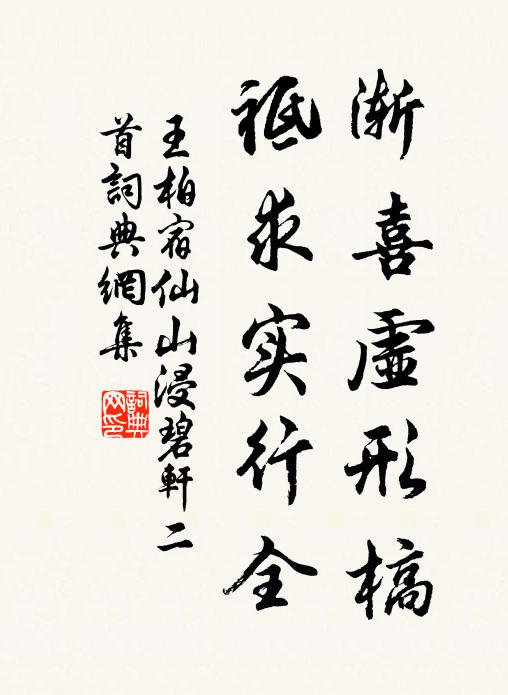 渐喜虚形槁
祗求实行全
王柏宿仙山浸碧軒二
首詞典網集
詞典
网印